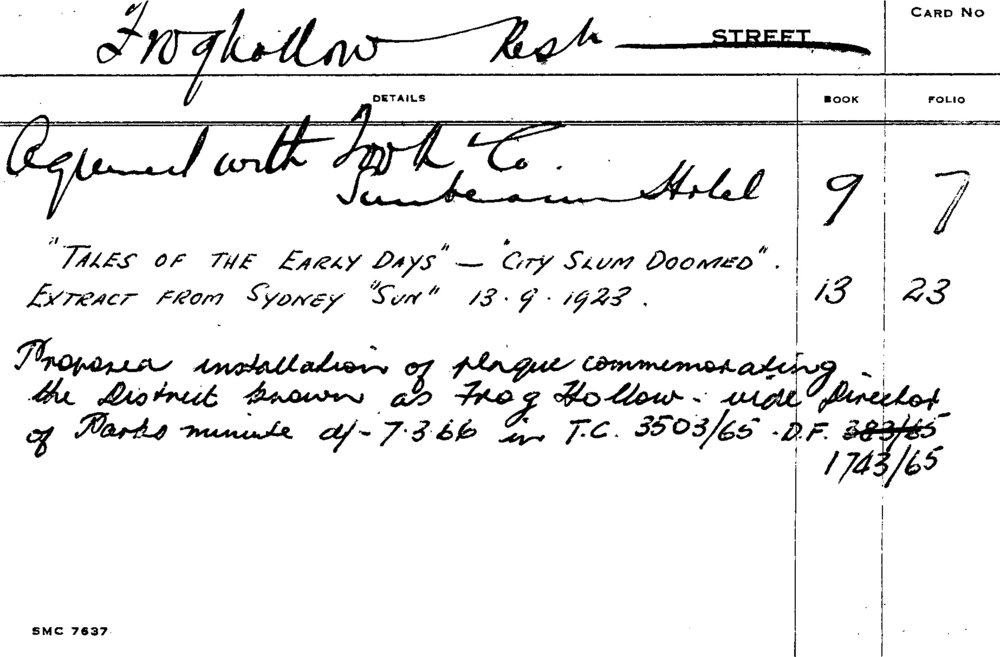 CARD NO
Froghollow Resh STREET
DETAILS BOOK FOLIO
Agreement with Tooth & Co.
Sunbeam Hotel 9 7
"TALES OF THE EARLY DAYS" — "CITY SLUM DOOMED".
EXTRACT FROM SYDNEY "SUN" 13.9.1923. 13 23
Proposed installation of plaque commemorating
the District known as Frog Hollow - vide Director
of Parks minute d/- 7.3.66 in T.C. 3503/65 - D.F. 383/65
1743/65
SMC 7637